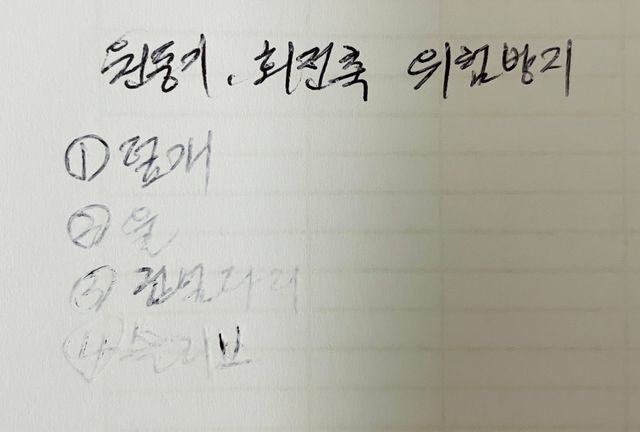 원동기 . 회전축 위험방지
① 덮개
② 울
③ 건널다리
④ 슬리브